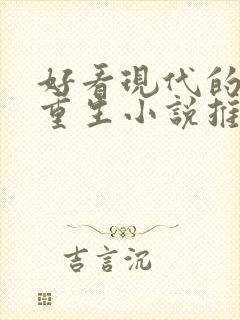 好看现代的
重生小说推
吉言沉